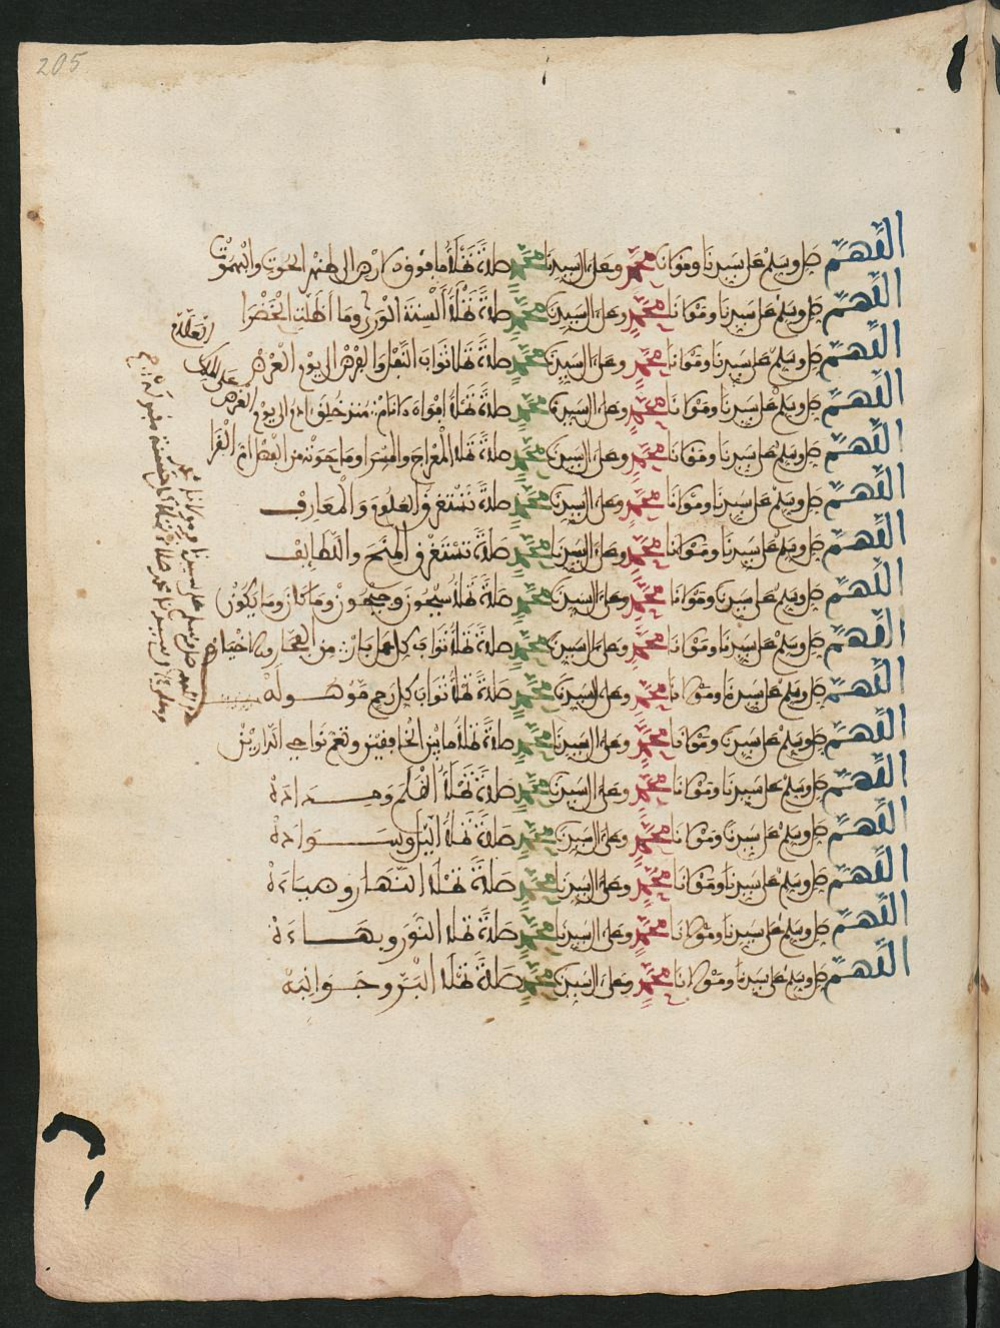 205
اللهم صل وسلم على سيدنا ومولانا محمد وعلى ال سيدنا محمد صلاة تملأ ما فوق الارض الى ظهر الحوت والبهموت
اللهم صل وسلم على سيدنا ومولانا محمد وعلى ال سيدنا محمد صلاة تملأ ألسنة الورى وما أظلت الخضرا
اللهم صل وسلم على سيدنا ومولانا محمد وعلى ال سيدنا محمد صلاة تملأ ثواب النفل والفرض الى يوم العرض
اللهم صل وسلم على سيدنا ومولانا محمد وعلى ال سيدنا محمد صلاة تملأ أفواه الانام منذ خلق ادم الى يوم
اللهم صل وسلم على سيدنا ومولانا محمد وعلى ال سيدنا محمد صلاة تملأ المعراج والمسرا وما حوته من الفضل ام القرا
اللهم صل وسلم على سيدنا ومولانا محمد وعلى ال سيدنا محمد صلاة تستغرق العلوم والمعارف
اللهم صل وسلم على سيدنا ومولانا محمد وعلى ال سيدنا محمد صلاة تستغرق المنح واللطايف
اللهم صل وسلم على سيدنا ومولانا محمد وعلى ال سيدنا محمد صلاة تملأ سيحون وجيحون وما كان وما يكون
اللهم صل وسلم على سيدنا ومولانا محمد وعلى ال سيدنا محمد صلاة تملأ ثواب كل من الفجار والاخيار
اللهم صل وسلم على سيدنا ومولانا محمد وعلى ال سيدنا محمد صلاة تملأ ثواب كل
اللهم صل وسلم على سيدنا ومولانا محمد وعلى ال سيدنا محمد صلاة تملأ ما بين الخافقين وتعم نواحي الدارين
اللهم صل وسلم على سيدنا ومولانا محمد وعلى ال سيدنا محمد صلاة تملأ القلم ومداده
اللهم صل وسلم على سيدنا ومولانا محمد وعلى ال سيدنا محمد صلاة تملأ اليل وسواده
اللهم صل وسلم على سيدنا ومولانا محمد وعلى ال سيدنا محمد صلاة تملأ النهار وضياءه
اللهم صل وسلم على سيدنا ومولانا محمد وعلى ال سيدنا محمد صلاة تملأ النور وبهاءه
اللهم صل وسلم على سيدنا ومولانا محمد وعلى ال سيدنا محمد صلاة تملأ البر وجوانبه
العرض على الملك
اللهم صل وسلم على سيدنا ومولانا محمد
وعلى ال سيدنا محمد صلاة تملأ